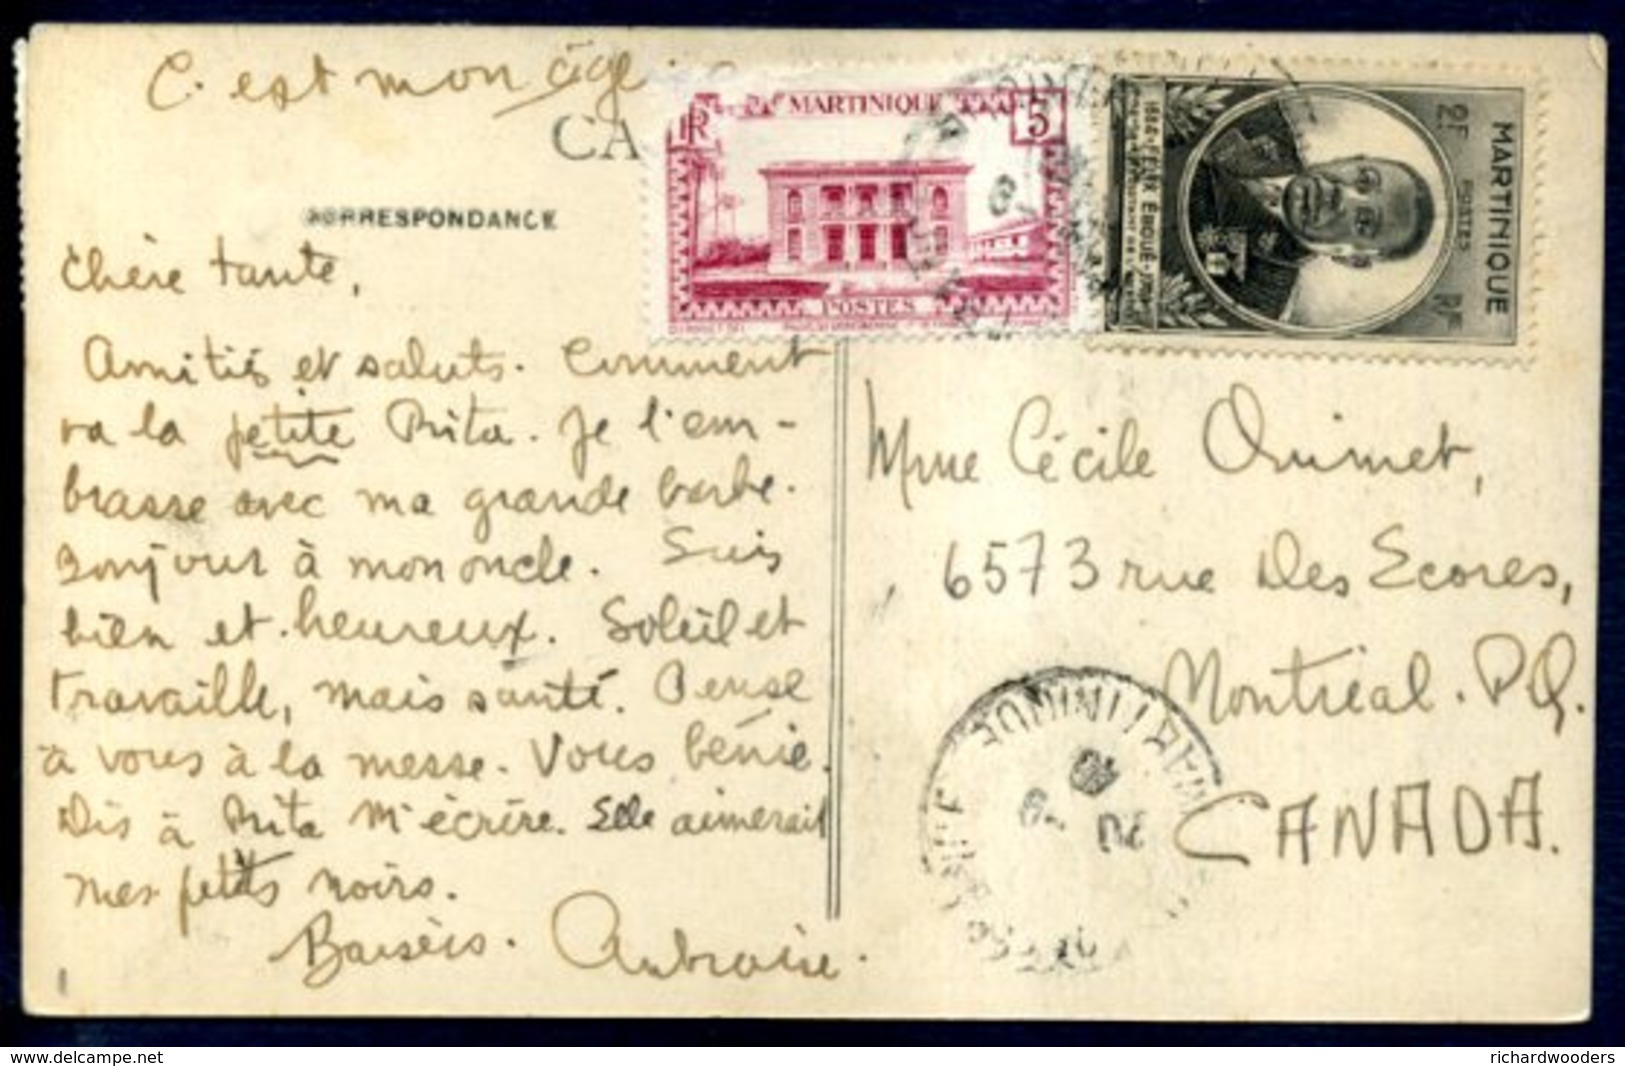 C. est mon
CA
CORRESPONDANCE
RF MARTINIQUE 5
POSTES
MARTINIQUE
2F POSTES RF
FÉLIX ÉBOUÉ
Chère tante,
Amitiés et saluts. Comment
va la petite Rita. Je l'em-
brasse avec ma grande barbe.
Bonjour à mon oncle. Suis
bien et heureux. Soleil et
travaille, mais santé. Pense
à vous à la messe. Vous bénie.
Dis à Rita m'écrire. Elle aimerait
mes petits noirs.
Baisers. Ambroise.
Mme Cécile Ouimet,
6573 rue Des Ecores,
Montréal. P.Q.
CANADA.
MARTINIQUE
delcampe.net
richardwooders